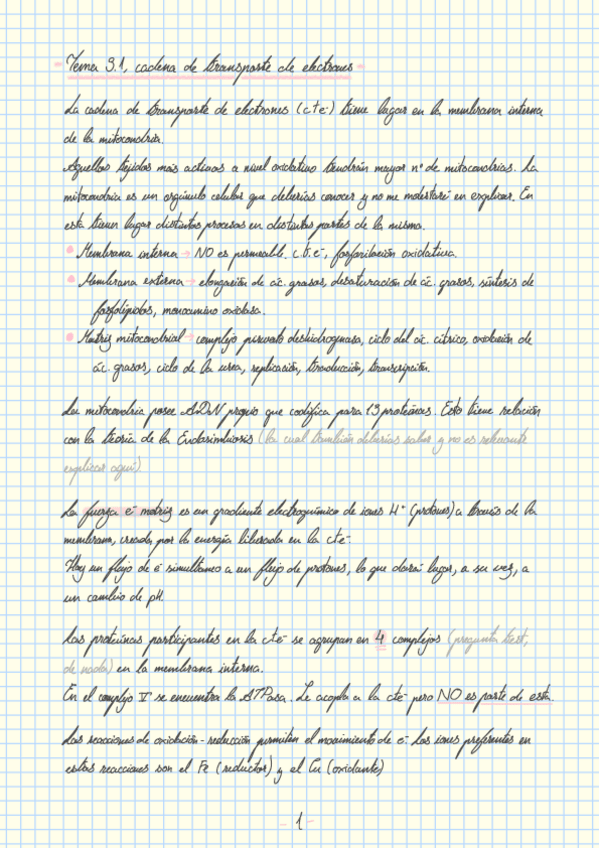 Tema 3.1, cadena de transporte de electrones
La cadena de transporte de electrones (cte⁻) tiene lugar en la membrana interna
de la mitocondria.
Aquellos tejidos más activos a nivel oxidativo tendrán mayor nº de mitocondrias. La
mitocondria es un orgánulo celular que deberías conocer y no me molestaré en explicar. En
esta tienen lugar distintos procesos en distintas partes de la misma.
• Membrana interna → NO es permeable. c.t.e⁻, fosforilación oxidativa.
• Membrana externa → elongación de ác. grasos, desaturación de ác. grasos, síntesis de
fosfolípidos, monoamino oxidasa.
• Matriz mitocondrial → complejo piruvato deshidrogenasa, ciclo del ác. cítrico, oxidación de
ác. grasos, ciclo de la urea, replicación, traducción, transcripción.
La mitocondria posee ADN propio que codifica para 13 proteínas. Esto tiene relación
con la teoría de la Endosimbiosis (la cual también deberías saber y no es relevante
explicar aquí)
La fuerza e⁻ motriz es un gradiente electroquímico de iones H⁺ (protones) a través de la
membrana, creada por la energía liberada en la cte⁻
Hay un flujo de e⁻ simultáneo a un flujo de protones, lo que dará lugar, a su vez, a
un cambio de pH.
Las proteínas participantes en la cte⁻ se agrupan en 4 complejos (pregunta test,
de nada) en la membrana interna.
En el complejo V se encuentra la ATPasa. Se acopla a la cte⁻ pero NO es parte de esta.
Las reacciones de oxidación-reducción permiten el movimiento de e⁻. Los iones preferentes en
estas reacciones son el Fe (reductor) y el Cu (oxidante)
- 1 -